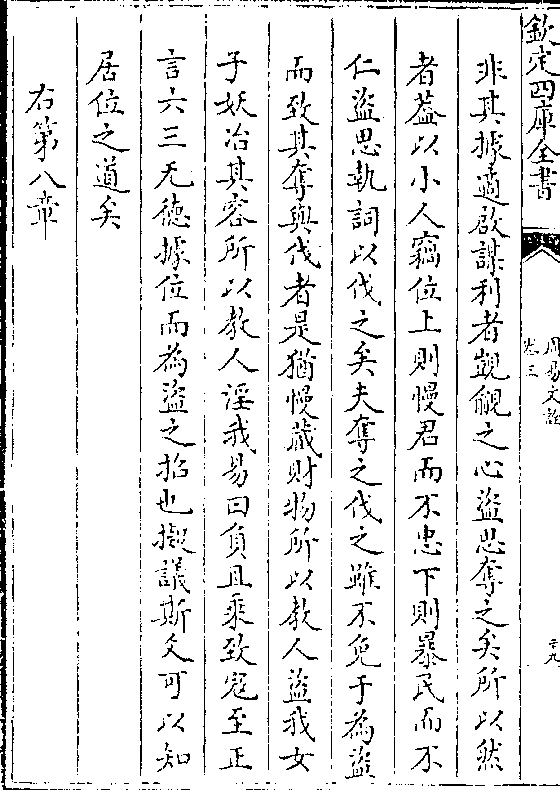 欽定四庫全書
周易文詮
卷三
二十九
非其據適啟謀利者覬覦之心盜思奪之矣所以然
者葢以小人竊位上則慢君而不忠下則暴民而不
仁盜思執詞以伐之矣夫奪之伐之雖不免于為盜
而致其奪與伐者是猶慢藏財物所以教人盜我女
子妖冶其容所以教人淫我易曰負且乘致寇至正
言六三无德據位而為盜之招也擬議斯爻可以知
居位之道矣
右第八章